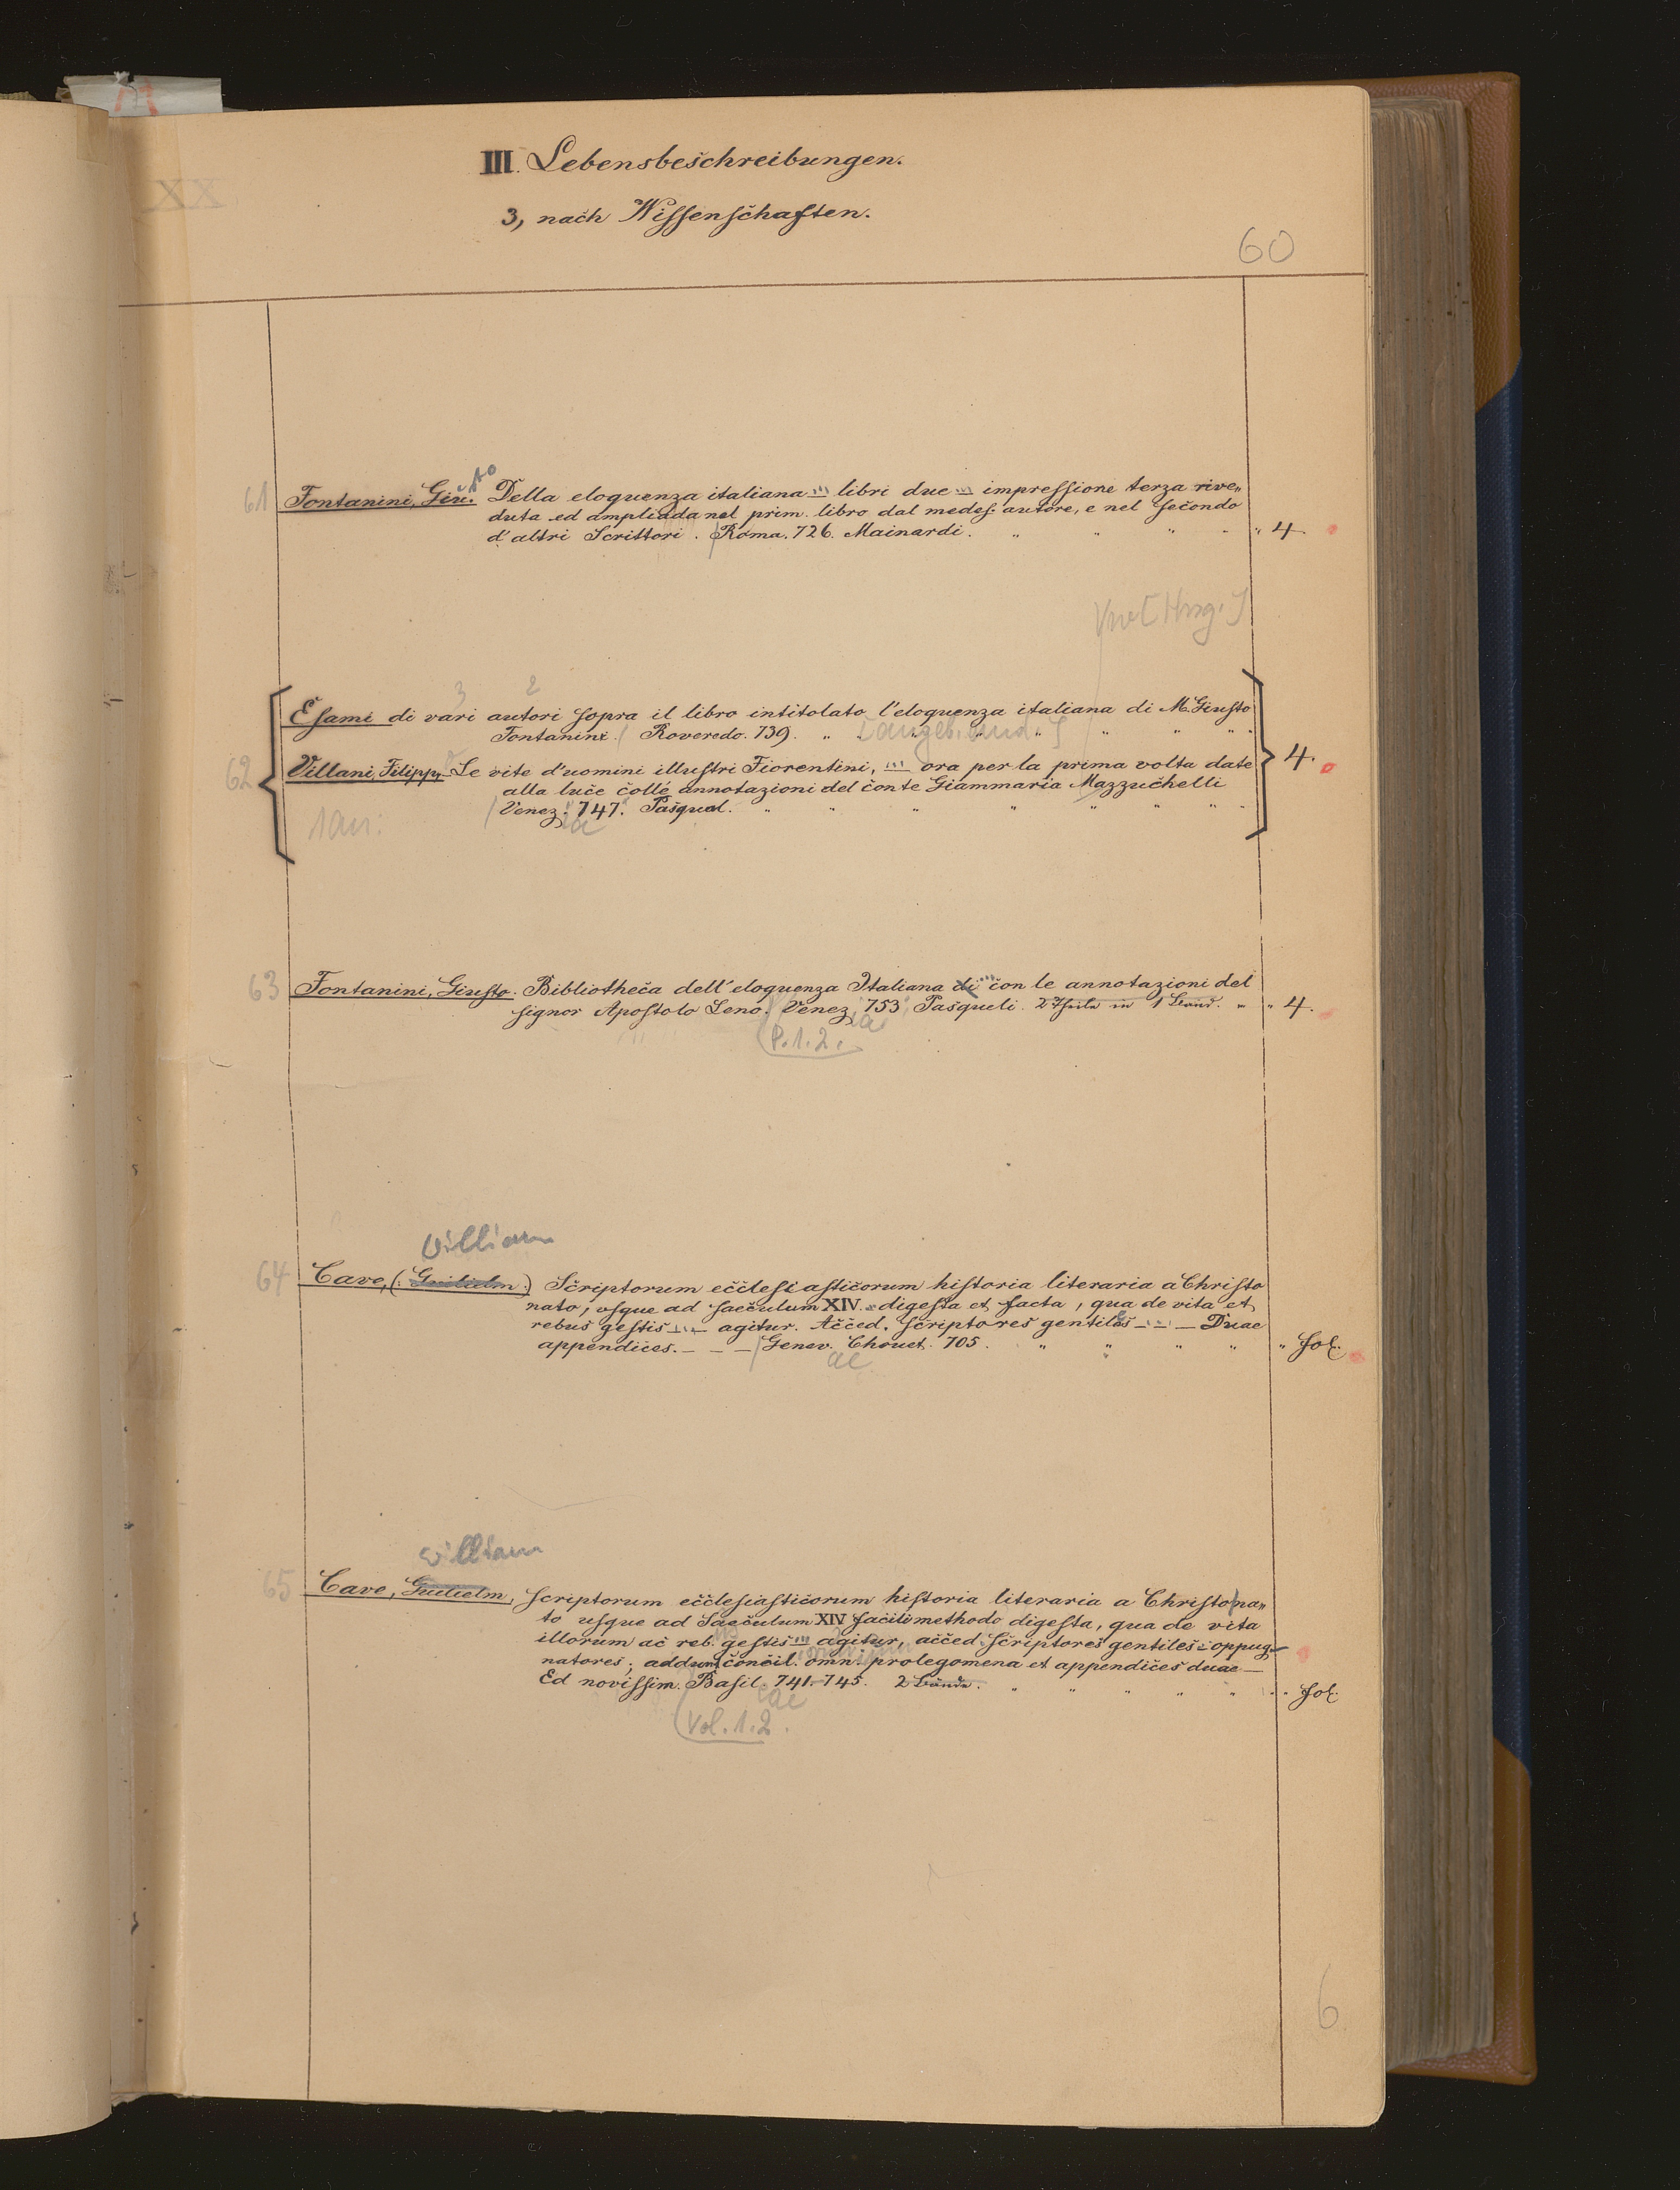 III. Lebensbeschreibungen.
3, nach Wissenschaften.
60
61 Fontanini, Giu. sto Della eloquenza italiana ''' libri due ''' impressione terza rive„
duta ed ampliada nel prim. libro dal medes. autore, e nel secondo
d'altri Scrittori. Roma. 726. Mainardi. " " " " " 4.
[Hrsg.]
3 2
Esami di vari autori sopra il libro intitolato l'eloquenza italiana di M. Giusto
Fontanini. Roveredo. 739. " " " " " " "
62 Villani, Filippo Le vite d'uomini illustri Fiorentini, ''' ora per la prima volta date 4.
alla luce colle annotazioni del conte Giammaria Mazzuchelli
Venez. 747. Pasqual. " " " " " " " "
ia
63 Fontanini, Giusto. Bibliotheca dell' eloquenza Italiana di ''' con le annotazioni del
signor Apostolo Zeno. Venez. 753 Pasqueli. 2 Theile in 1 Band. " " 4.
ia
P. 1. 2.
William
64 Cave, (: Guilielm :) Scriptorum ecclesiasticorum historia literaria a Christo
nato, usque ad saeculum XIV. digesta et facta, qua de vita et
rebus gestis — agitur. Acced. scriptores gentiles — — Duae
appendices. — — — Genev. Chouet. 705. " " " " " fol.
ae
William
65 Cave, Guilielm, Scriptorum ecclesiasticorum historia literaria a Christo na„
to usque ad Saeculum XIV facili methodo digesta, qua de vita
illorum ac reb. gestis ''' agitur, acced. scriptores gentiles oppug„
natores; addum concil. omn. prolegomena et appendices duae —
Ed novissim. Basil. 741-745. 2 Bände. " " " " " " fol.
eae
Vol. 1. 2.
6